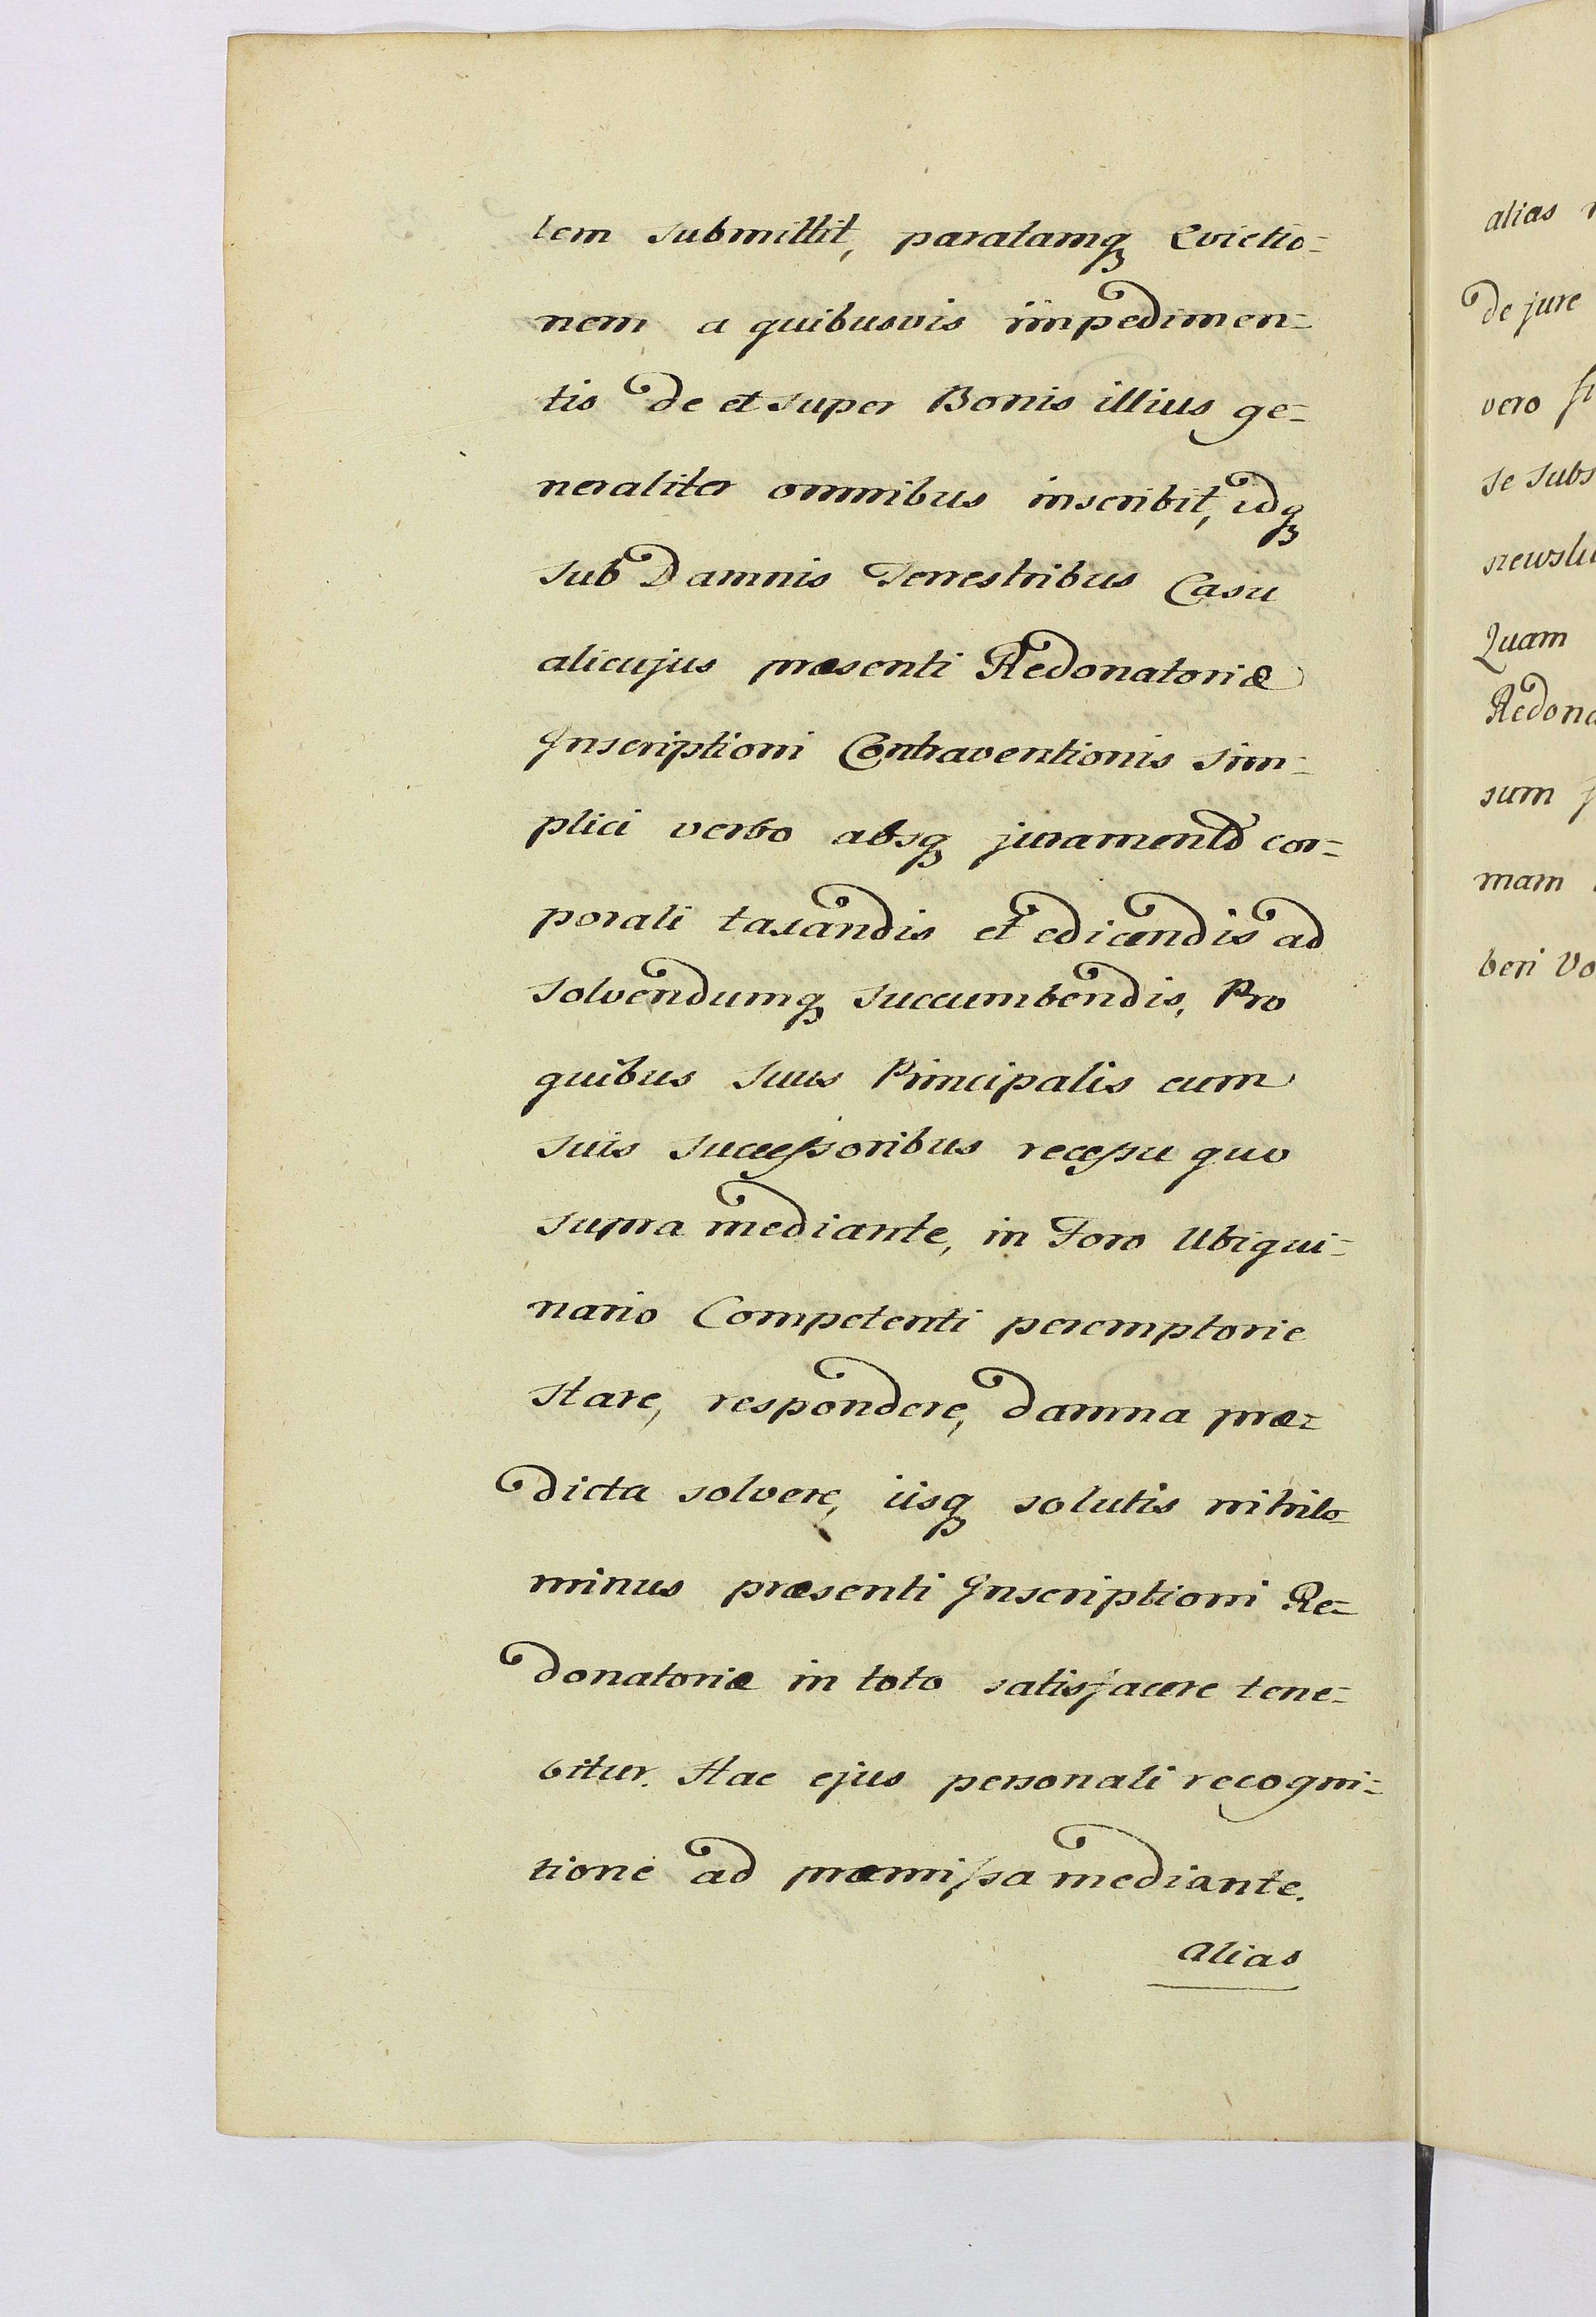 tem submittit, paratamq₃ Evictio=
nem a quibusvis impedimen=
tis de et super Bonis illius ge=
neraliter omnibus inscribit, idq₃
sub Damnis Terrestribus Casu
alicujus præsenti Redonatoriæ
Inscriptioni Contraventionis sim=
plici verbo absq₃ juramento cor=
porali taxandis et edicendis ad
solvendumq₃ succumbendis, Pro
quibus suus Principalis cum
suis successoribus recessu quo
supra mediante, in Foro Ubiqui=
nario Competenti peremptorie
stare, respondere, damna præ=
dicta solvere, iisq₃ solutis nihilo=
minus præsenti Inscriptioni Re=
donatoriæ in toto satisfacere tene=
bitur. Hac ejus personali recogni=
tione ad præmissa mediante.
alias
alias
de jure
vero
se subs
Quam
Redona
sum
mam
beri Vo